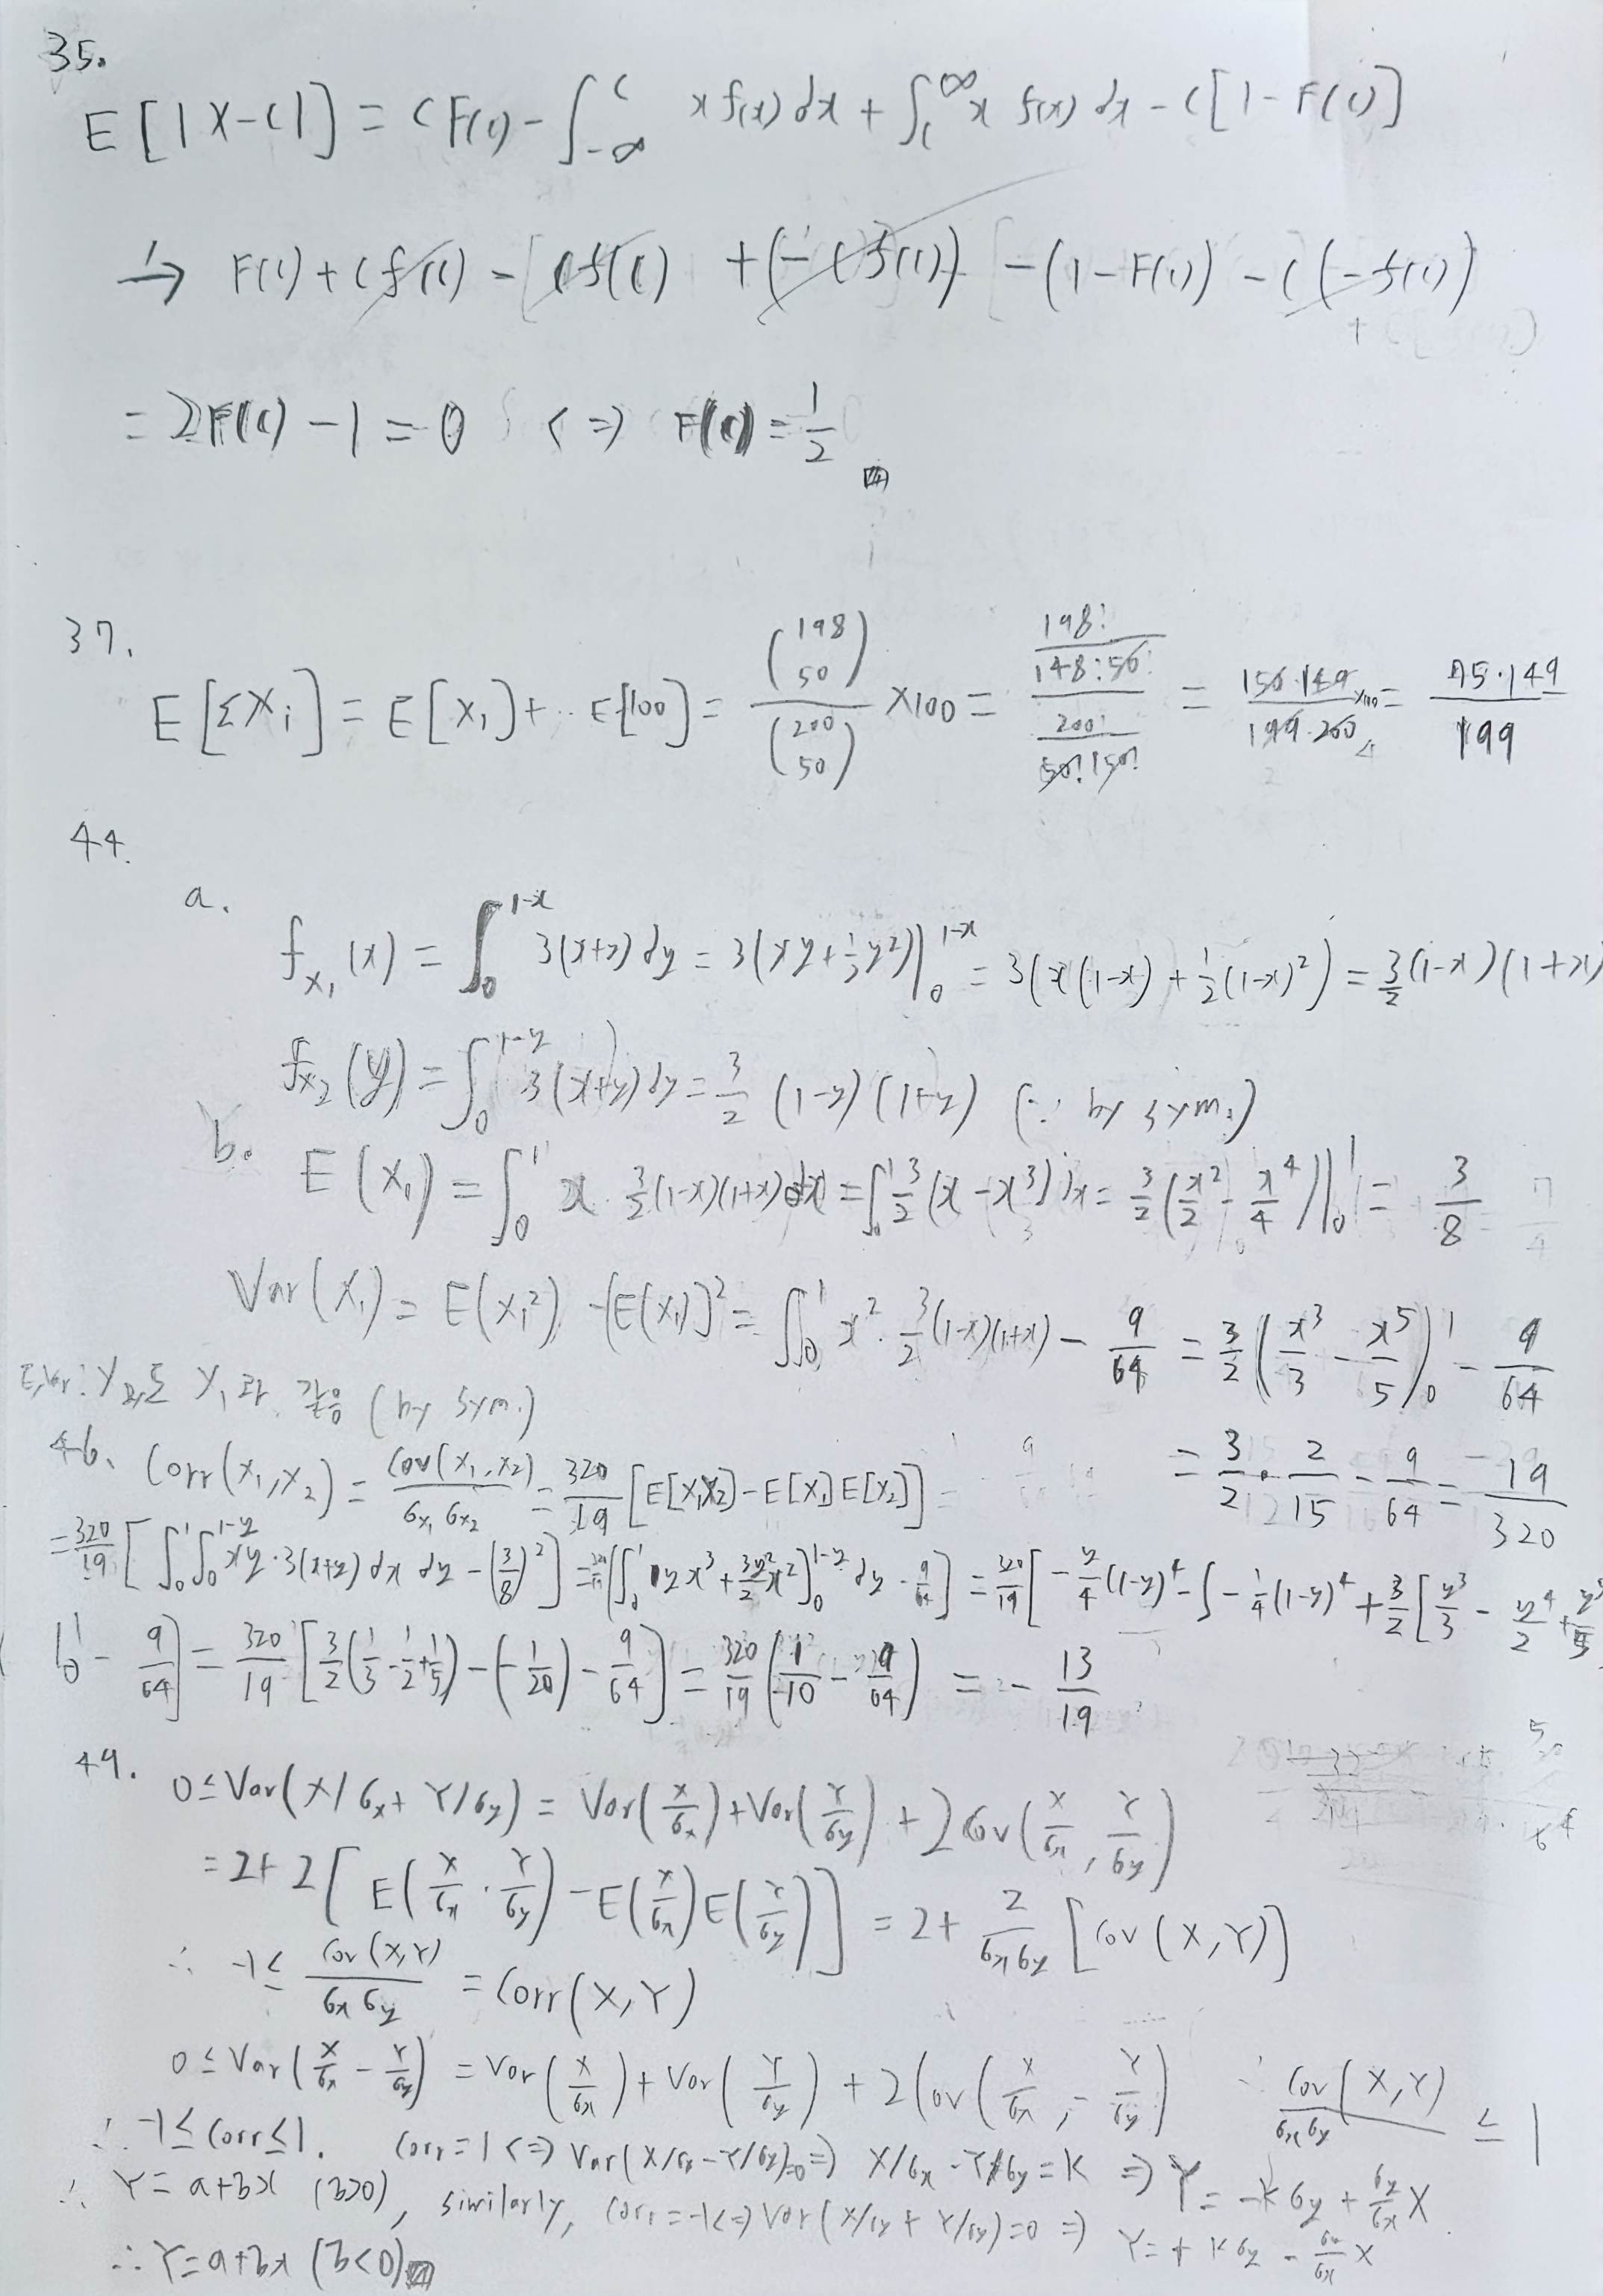 35.
E[|X-c|] = cF(c) - ∫_{-∞}^{c} x f(x) dx + ∫_{c}^{∞} x f(x) dx - c[1-F(c)]
→ F(c) + cf(c) - cf(c) + (-cf(c)) - (1-F(c)) - c(-f(c))
= 2F(c) - 1 = 0 <=> F(c) = 1/2
37.
E[ΣX_i] = E[X_1] + ·· E[100] = \frac{\binom{198}{50}}{\binom{200}{50}} ×100 = \frac{\frac{198!}{148!50!}}{\frac{200!}{50!150!}} = \frac{150·149}{199·200} ×100 = \frac{75·149}{199}
44.
a.
f_{X_1}(x) = ∫_0^{1-x} 3(x+y) dy = 3(xy + \frac{1}{2}y^2)|_0^{1-x} = 3(x(1-x) + \frac{1}{2}(1-x)^2) = \frac{3}{2}(1-x)(1+x)
f_{X_2}(y) = ∫_0^{1-y} 3(x+y) dy = \frac{3}{2}(1-y)(1+y) (∵ by sym.)
b. E(X_1) = ∫_0^1 x · \frac{3}{2}(1-x)(1+x) dx = ∫_0^1 \frac{3}{2}(x-x^3) dx = \frac{3}{2}(\frac{x^2}{2} - \frac{x^4}{4})|_0^1 = \frac{3}{8}
Var(X_1) = E(X_1^2) - [E(X_1)]^2 = ∫_0^1 x^2 · \frac{3}{2}(1-x)(1+x) - \frac{9}{64} = \frac{3}{2}(\frac{x^3}{3} - \frac{x^5}{5})_0^1 - \frac{9}{64}
= \frac{3}{2} · \frac{2}{15} - \frac{9}{64} = \frac{19}{320}
E,Var: Y_2도 Y_1과 같음 (by sym.)
46. Corr(X_1,X_2) = \frac{Cov(X_1,X_2)}{σ_{X_1}σ_{X_2}} = \frac{320}{19}[E[X_1X_2] - E[X_1]E[X_2]] =
= \frac{320}{19}[∫_0^1∫_0^{1-y} xy·3(x+y) dx dy - (\frac{3}{8})^2] = \frac{320}{19}[∫_0^1 yx^3 + \frac{3y^2}{2}x^2]_0^{1-y} dy - \frac{9}{64}] = \frac{320}{19}[-\frac{y}{4}(1-y)^4 - ∫-\frac{1}{4}(1-y)^4 + \frac{3}{2}[\frac{y^3}{3} - \frac{y^4}{2} + \frac{y^5}{5}
]_0^1 - \frac{9}{64}] = \frac{320}{19}[\frac{3}{2}(\frac{1}{3} - \frac{1}{2} + \frac{1}{5}) - (-\frac{1}{20}) - \frac{9}{64}] = \frac{320}{19}(\frac{1}{10} - \frac{9}{64}) = -\frac{13}{19}
49.
0 ≤ Var(X/σ_x + Y/σ_y) = Var(\frac{X}{σ_x}) + Var(\frac{Y}{σ_y}) + 2Cov(\frac{X}{σ_x}, \frac{Y}{σ_y})
= 2 + 2[E(\frac{X}{σ_x}·\frac{Y}{σ_y}) - E(\frac{X}{σ_x})E(\frac{Y}{σ_y})] = 2 + \frac{2}{σ_xσ_y}[Cov(X,Y)]
∴ -1 ≤ \frac{Cov(X,Y)}{σ_xσ_y} = Corr(X,Y)
0 ≤ Var(\frac{X}{σ_x} - \frac{Y}{σ_y}) = Var(\frac{X}{σ_x}) + Var(\frac{Y}{σ_y}) + 2Cov(\frac{X}{σ_x}, -\frac{Y}{σ_y}) ∴ \frac{Cov(X,Y)}{σ_xσ_y} ≤ 1
∴ -1 ≤ Corr ≤ 1. Corr = 1 <=> Var(X/σ_x - Y/σ_y)=0 => X/σ_x - Y/σ_y = K => Y = -Kσ_y + \frac{σ_y}{σ_x}X
∴ Y = a+bx (b>0), similarly, Corr = -1 <=> Var(X/σ_x + Y/σ_y) = 0 => Y = +Kσ_y - \frac{σ_y}{σ_x}X
∴ Y = a+bx (b<0)